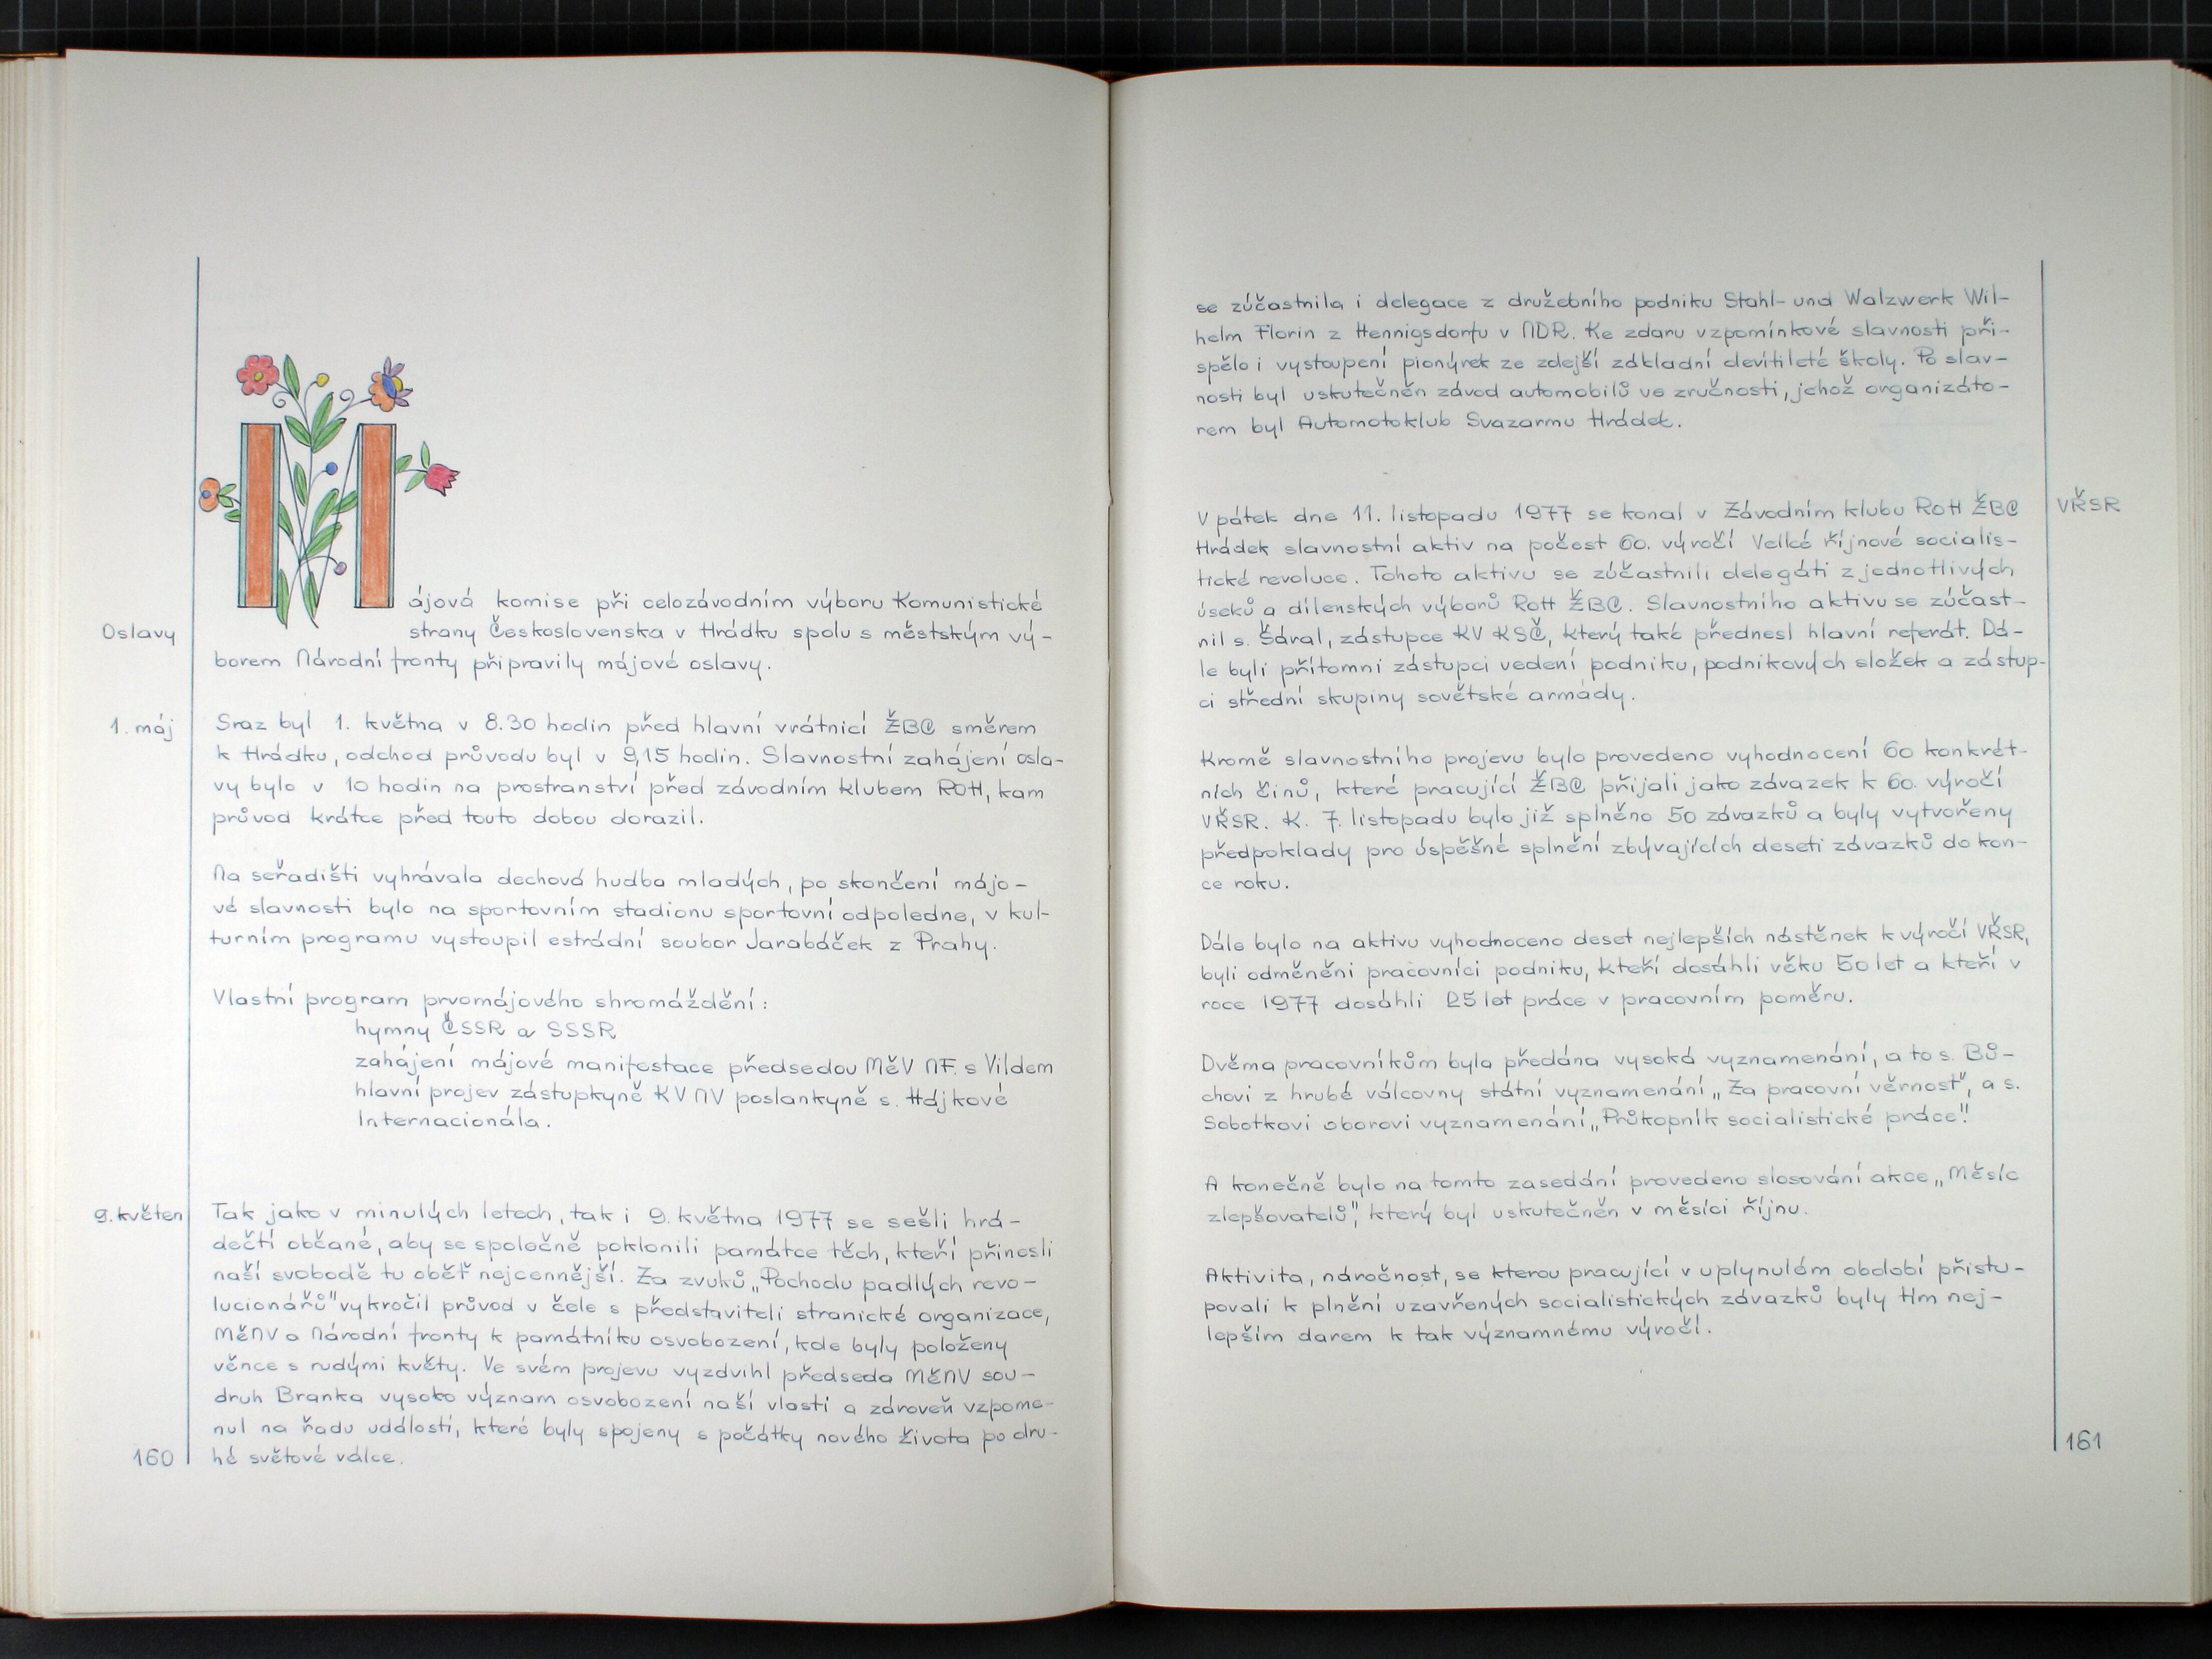 Májová komise při celozávodním výboru Komunistické
Oslavy
strany Československa v Hrádku spolu s městským vý-
borem Národní fronty připravily májové oslavy.
1. máj
Sraz byl 1. května v 8.30 hodin před hlavní vrátnicí ŽBC směrem
k Hrádku, odchod průvodu byl v 9,15 hodin. Slavnostní zahájení osla-
vy bylo v 10 hodin na prostranství před závodním klubem ROH, kam
průvod krátce před touto dobou dorazil.
Na seřadišti vyhrávala dechová hudba mladých, po skončení májo-
vé slavnosti bylo na sportovním stadionu sportovní odpoledne, v kul-
turním programu vystoupil estrádní soubor Jarabáček z Prahy.
Vlastní program prvomájového shromáždění:
hymny ČSSR a SSSR
zahájení májové manifestace předsedou MěV NF. s Vildem
hlavní projev zástupkyně KV NV poslankyně s. Hájkové
Internacionála.
9. květen
Tak jako v minulých letech, tak i 9. května 1977 se sešli hrá-
dečtí občané, aby se společně poklonili památce těch, kteří přinesli
naší svobodě tu oběť nejcennější. Za zvuků „Pochodu padlých revo-
lucionářů" vykročil průvod v čele s představiteli stranické organizace,
MěNV a Národní fronty k památníku osvobození, kde byly položeny
věnce s rudými květy. Ve svém projevu vyzdvihl předseda MěNV sou-
druh Branka vysoko význam osvobození naší vlasti a zároveň vzpome-
nul na řadu událostí, které byly spojeny s počátky nového života po dru-
hé světové válce.
160
se zúčastnila i delegace z družebního podniku Stahl- und Walzwerk Wil-
helm Florin z Hennigsdorfu v NDR. Ke zdaru vzpomínkové slavnosti při-
spělo i vystoupení pionýrek ze zdejší základní devítileté školy. Po slav-
nosti byl uskutečněn závod automobilů ve zručnosti, jehož organizáto-
rem byl Automotoklub Svazarmu Hrádek.
VŘSR
V pátek dne 11. listopadu 1977 se konal v Závodním klubu ROH ŽBC
Hrádek slavnostní aktiv na počest 60. výročí Velké říjnové socialis-
tické revoluce. Tohoto aktivu se zúčastnili delegáti z jednotlivých
úseků a dílenských výborů ROH ŽBC. Slavnostního aktivu se zúčast-
nil s. Šáral, zástupce KV KSČ, který také přednesl hlavní referát. Dá-
le byli přítomni zástupci vedení podniku, podnikových složek a zástup-
ci střední skupiny sovětské armády.
Kromě slavnostního projevu bylo provedeno vyhodnocení 60 konkrét-
ních činů, které pracující ŽBC přijali jako závazek k 60. výročí
VŘSR. K. 7. listopadu bylo již splněno 50 závazků a byly vytvořeny
předpoklady pro úspěšné splnění zbývajících deseti závazků do kon-
ce roku.
Dále bylo na aktivu vyhodnoceno deset nejlepších nástěnek k výročí VŘSR,
byli odměněni pracovníci podniku, kteří dosáhli věku 50 let a kteří v
roce 1977 dosáhli 25 let práce v pracovním poměru.
Dvěma pracovníkům byla předána vysoká vyznamenání, a to s. Bů-
chovi z hrubé válcovny státní vyznamenání „Za pracovní věrnost", a s.
Sobotkovi oborovi vyznamenání „Průkopník socialistické práce".
A konečně bylo na tomto zasedání provedeno slosování akce „Měsíc
zlepšovatelů", který byl uskutečněn v měsíci říjnu.
Aktivita, náročnost, se kterou pracující v uplynulém období přistu-
povali k plnění uzavřených socialistických závazků byly tím nej-
lepším darem k tak významnému výročí.
161